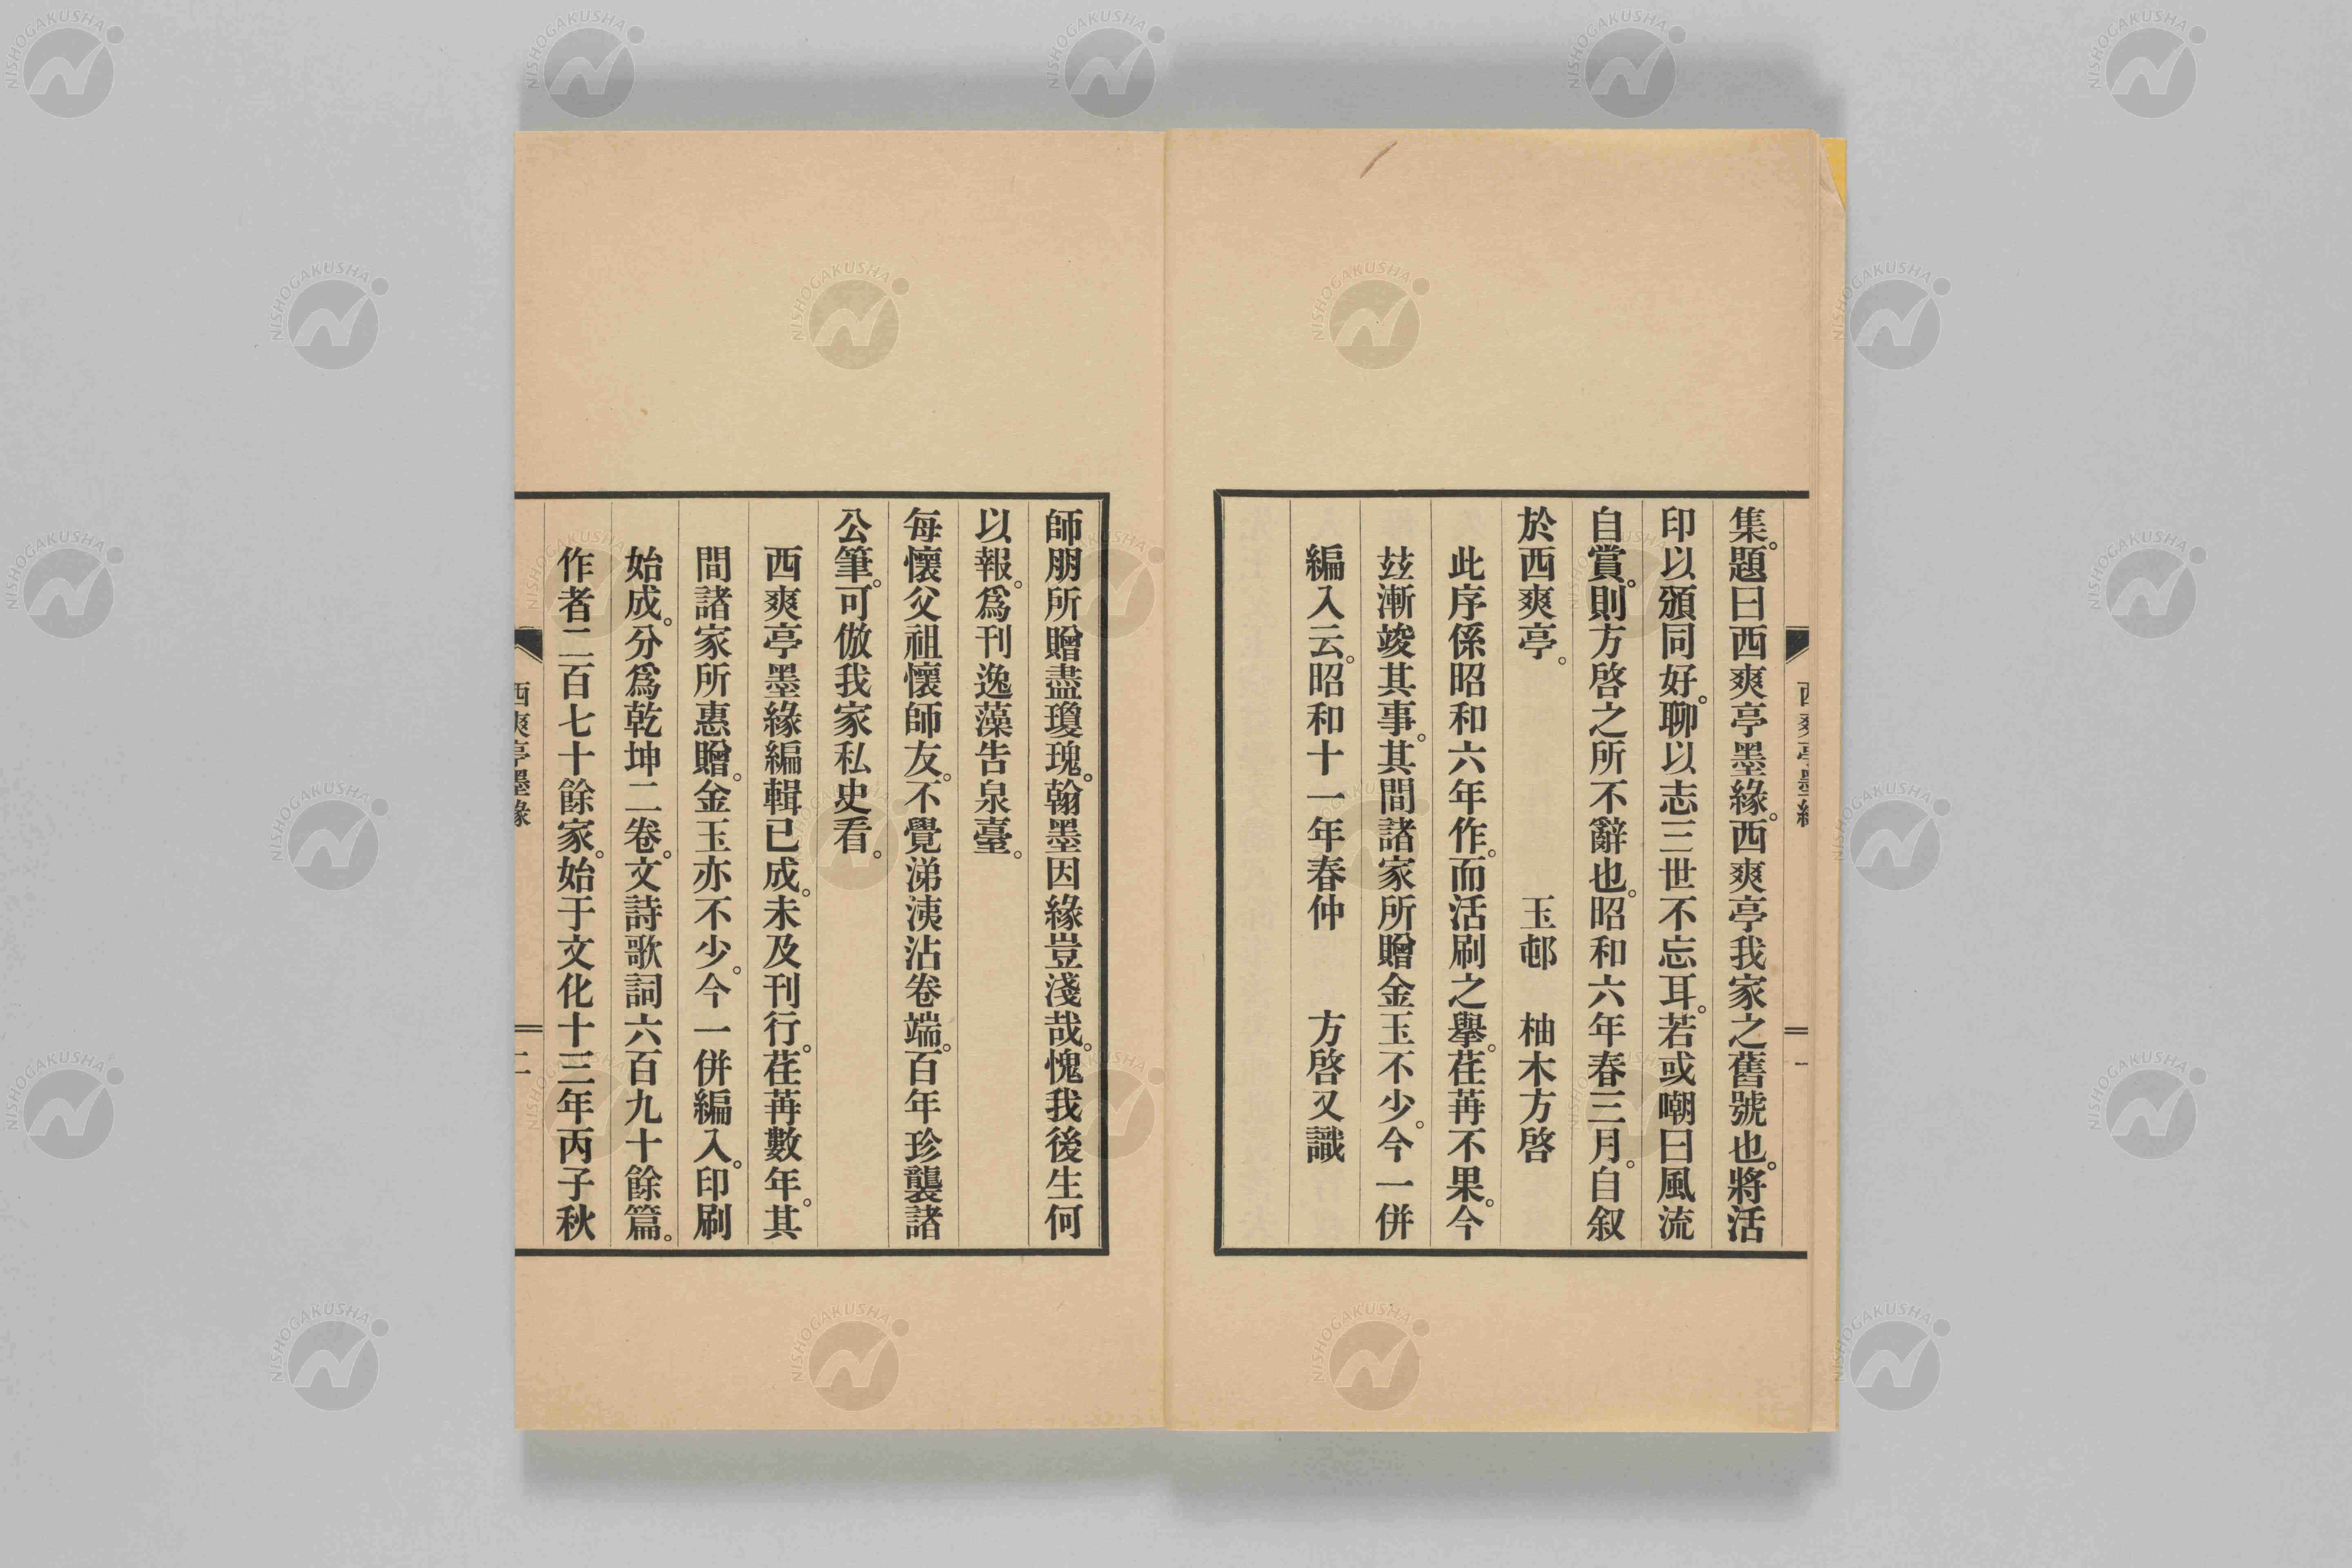 西爽亭墨緣
一
集。題曰西爽亭墨緣。西爽亭我家之舊號也。將活
印以頒同好。聊以志三世不忘耳。若或嘲曰風流
自賞。則方啓之所不辭也。昭和六年春三月。自叙
於西爽亭。 玉邨 柚木方啓
此序係昭和六年作。而活刷之擧。荏苒不果。今
玆漸竣其事。其間諸家所贈金玉不少。今一併
編入云。昭和十一年春仲 方啓又識
師朋所贈盡瓊瑰。翰墨因緣豈淺哉。愧我後生何
以報。爲刊逸藻告泉臺。
每懷父祖懷師友。不覺涕洟沾卷端。百年珍襲諸
公筆。可倣我家私史看。
西爽亭墨緣編輯已成。未及刊行。荏苒數年。其
間諸家所惠贈。金玉亦不少。今一併編入。印刷
始成。分爲乾坤二卷。文詩歌詞六百九十餘篇。
作者二百七十餘家。始于文化十三年丙子秋
西爽亭墨緣
二
NISHOGAKUSHA